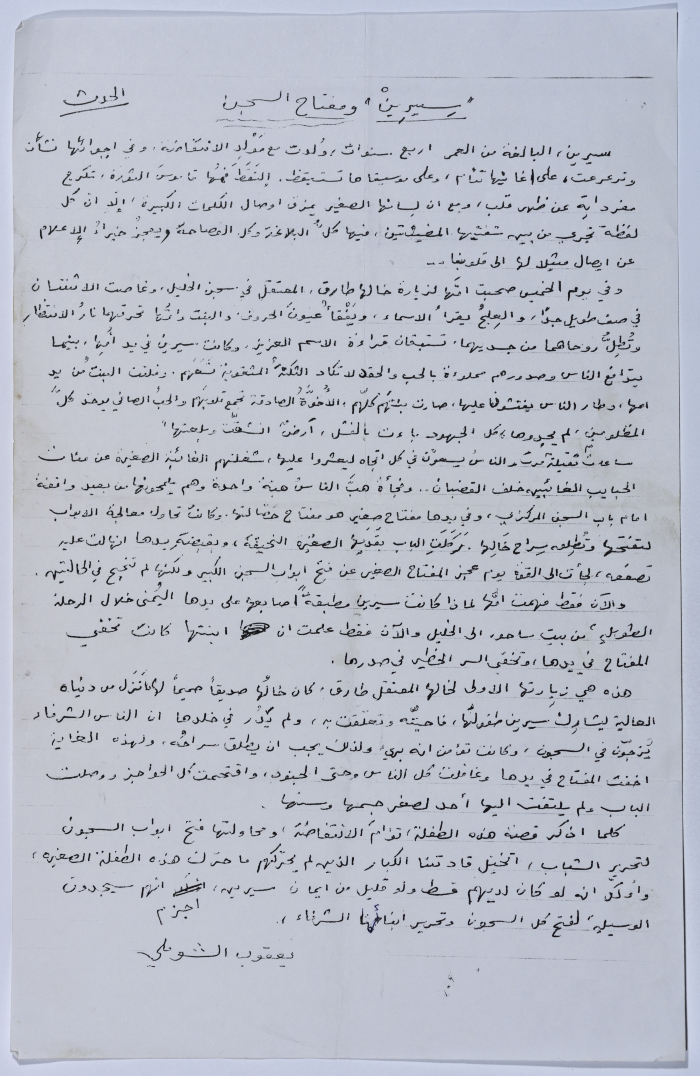 "سيرين" ومفتاح السجن
الحدث ٨
سيرين، البالغة من العمر اربع سنوات، ولدت مع مولد الانتفاضة، وفي اجوائها نشأت
وترعرعت، على اغانيها تنام، وعلى موسيقاها تستيقظ. التقط فمها قاموس الثورة، تكرج
مفرداته عن ظهر قلب، ومع ان لسانها الصغير يمزق اوصال الكلمات الكبيرة، إلا ان كل
لفظة تخرج من بين شفتيها المضيئتين، فيها كل البلاغة وكل الفصاحة ويعجز خبراء الإعلام
عن ايصال مثيلا لها الى قلوبنا ..
وفي يوم الخميس صحبت امها لزيارة خالها طارق، المعتقل في سجن الخليل، وغاصت الاثنتان
في صف طويل جداً، والعلج يقرأ الاسماء، ويفقأ عيون الحروف، والبنت وامها تحرقهما نار الانتظار
وتطل روحاهما من جسديهما، تستبقان قراءة الاسم العزيز، وكانت سيرين في يد أمها، بينما
يتدافع الناس وصدورهم مملوءة بالحب والحقد لا تكاد الثكنة المشؤومة تسعهم. وفلتت البنت من يد
امها، وطار الناس يفتشون عليها، صارت بنتهم كلهم، الأخوة الصادقة تجمع قلوبهم والحب الصافي يوحد كل
المظلومين، لم يجدوها، كل الجهود باءت بالفشل، أرض انشقت وبلعتها
ساعات ثقيلة مرت والناس يسعون في كل اتجاه ليعثروا عليها، شغلتهم الغائبة الصغيرة عن مئات
الحبايب الغائبين خلف القضبان .. وفجأة هب الناس هبة واحدة وهم يلمحونها من بعيد واقفة
امام باب السجن المركزي، وفي يدها مفتاح صغير هو مفتاح خزانتها. وكانت تحاول معالجة الابواب
لتفتحها وتطلق سراح خالها. تركل الباب بقدمها الصغيرة النحيفة، وبقبضة يدها انهالت عليه
تصفعه، لجأت الى القوة يوم عجز المفتاح الصغير عن فتح ابواب السجن الكبير ولكنها لم تنجح في الحالتين.
والآن فقط فهمت امها لماذا كانت سيرين مطبقة اصابعها على يدها اليمنى خلال الرحلة
الطويلة من بيت ساحور الى الخليل والآن فقط علمت ان ابنتها كانت تخفي
المفتاح في يدها، وتخفي السر الخطير في صدرها.
هذه هي زيارتها الاولى لخالها المعتقل طارق، كان خالها صديقاً حميماً لها، تنزل من دنياه
العالية ليشارك سيرين طفولتها، فاحبته وتعلقت به، ولم يدر في خلدها ان الناس الشرفاء
يزجون في السجون، وكانت تؤمن انه بريء ولذلك يجب ان يطلق سراحه، ولهذه الغاية
اخفت المفتاح في يدها وغافلت كل الناس وحتى الجنود، واقتحمت كل الحواجز ووصلت
الباب ولم يلتفت اليها أحد لصغر حجمها وسنها.
كلما اتذكر قصة هذه الطفلة، توأم الانتفاضة، ومحاولتها فتح ابواب السجون
لتحرير الشباب، اتخيل قادتنا الكبار الذين لم يحركهم ما حرك هذه الطفلة الصغيرة،
وأؤكد انه لو كان لديهم قسط ولو قليل من ايمان سيرين، انهم سيجدون
اجزم
الوسيلة لفتح كل السجون وتحرير ابنائها الشرفاء.
يعقوب الشوملي